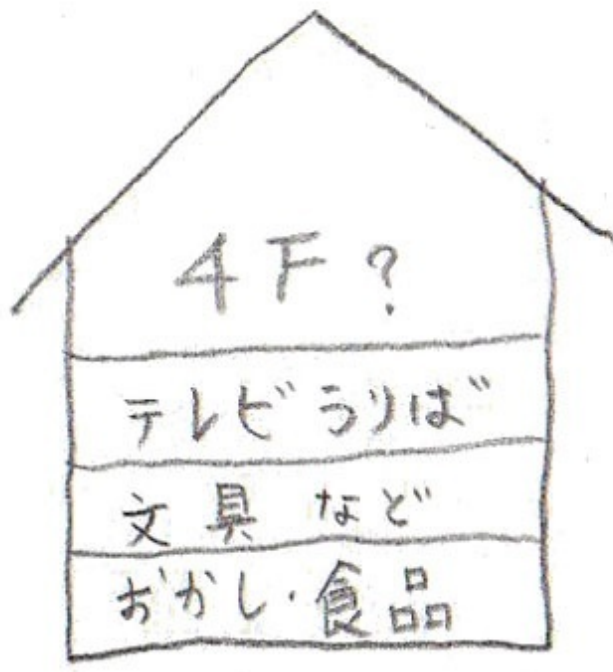 4F?
テレビうりば
文具 など
おかし・食品